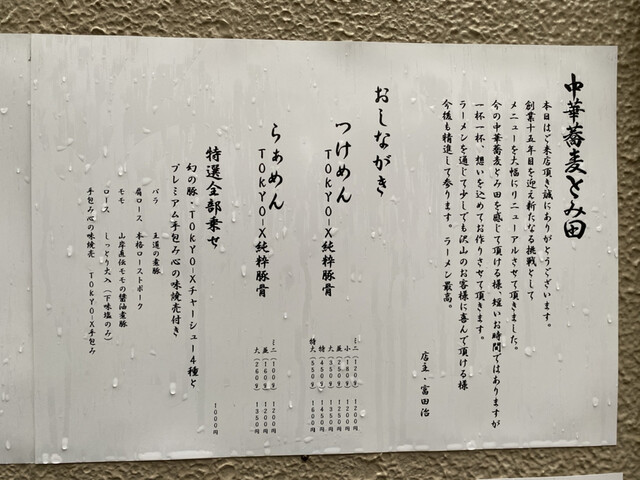 中華蕎麦とみ田
本日はご来店頂き誠にありがとうございます。
創業十五年目を迎え新たなる挑戦として
メニューを大幅にリニューアルさせて頂きました。
今の中華蕎麦とみ田を感じて頂ける様、短いお時間ではありますが
一杯一杯、想いを込めてお作りさせて頂きます。
ラーメンを通じて少しでも沢山のお客様に喜んで頂ける様
今後も精進して参ります。ラーメン最高。
店主・富田治
おしながき
つけめん
TOKYO-X純粋豚骨
ミニ(120g) 1200円
小(180g) 1200円
並(250g) 1250円
大(350g) 1350円
特(450g) 1400円
特大(550g) 1600円
らぁめん
TOKYO-X純粋豚骨
ミニ(100g) 1200円
並(160g) 1200円
大(260g) 1350円
特選全部乗せ
幻の豚・TOKYO-Xチャーシュー4種と
プレミアム手包み心の味焼売付き
1000円
バラ 王道の煮豚
肩ロース 本格ローストポーク
モモ 山岸直伝モモの醤油煮豚
ロース しっとり火入(下味塩のみ)
手包み心の味焼売 TOKYO-X手包み